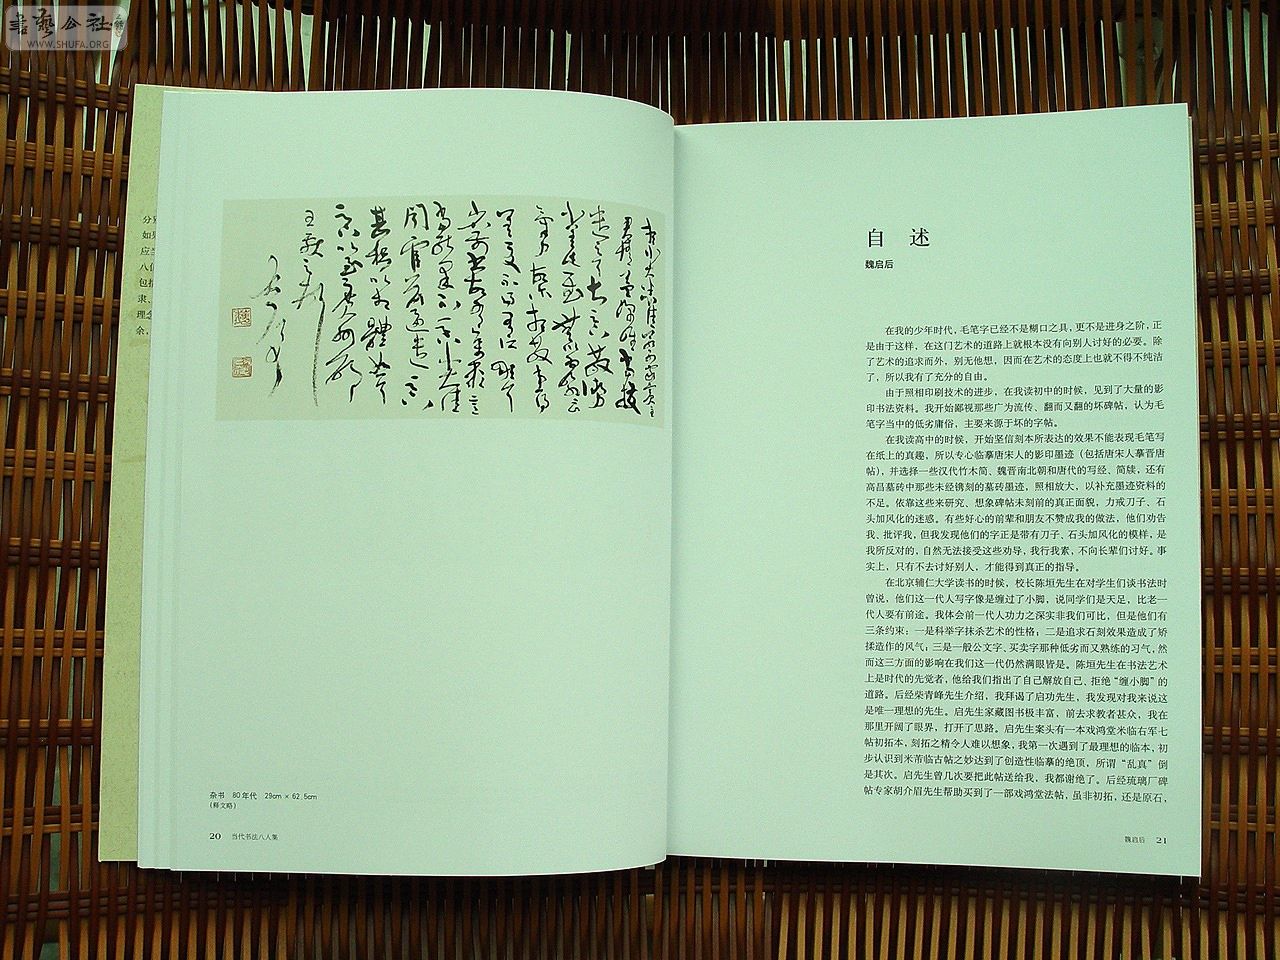 書藝公社
WWW.SHUFA.ORG
杂书 80年代 29cm × 62.5cm
(释文略)
20 当代书法八人集
自 述
魏启后
在我的少年时代，毛笔字已经不是糊口之具，更不是进身之阶，正
是由于这样，在这门艺术的道路上就根本没有向别人讨好的必要。除
了艺术的追求而外，别无他想，因而在艺术的态度上也就不得不纯洁
了，所以我有了充分的自由。
由于照相印刷技术的进步，在我读初中的时候，见到了大量的影
印书法资料。我开始鄙视那些广为流传、翻而又翻的坏碑帖，认为毛
笔字当中的低劣庸俗，主要来源于坏的字帖。
在我读高中的时候，开始坚信刻本所表达的效果不能表现毛笔写
在纸上的真趣，所以专心临摹唐宋人的影印墨迹（包括唐宋人摹晋唐
帖），并选择一些汉代竹木简、魏晋南北朝和唐代的写经、简牍，还有
高昌墓砖中那些未经镌刻的墓砖墨迹，照相放大，以补充墨迹资料的
不足。依靠这些来研究、想象碑帖未刻前的真正面貌，力戒刀子、石
头加风化的迷惑。有些好心的前辈和朋友不赞成我的做法，他们劝告
我、批评我，但我发现他们的字正是带有刀子、石头加风化的模样，是
我所反对的，自然无法接受这些劝导，我行我素，不向长辈们讨好。事
实上，只有不去讨好别人，才能得到真正的指导。
在北京辅仁大学读书的时候，校长陈垣先生在对学生们谈书法时
曾说，他们这一代人写字像是缠过了小脚，说同学们是天足，比老一
代人要有前途。我体会前一代人功力之深实非我们可比，但是他们有
三条约束：一是科举字抹杀艺术的性格；二是追求石刻效果造成了矫
揉造作的风气；三是一般公文字、买卖字那种低劣而又熟练的习气，然
而这三方面的影响在我们这一代仍然满眼皆是。陈垣先生在书法艺术
上是时代的先觉者，他给我们指出了自己解放自己、拒绝“缠小脚”的
道路。后经柴青峰先生介绍，我拜谒了启功先生，我发现对我来说这
是唯一理想的先生。启先生家藏图书极丰富，前去求教者甚众，我在
那里开阔了眼界，打开了思路。启先生案头有一本戏鸿堂米临右军七
帖初拓本，刻拓之精令人难以想象，我第一次遇到了最理想的临本，初
步认识到米芾临古帖之妙达到了创造性临摹的绝顶，所谓“乱真”倒
是其次。启先生曾几次要把此帖送给我，我都谢绝了。后经琉璃厂碑
帖专家胡介眉先生帮助买到了一部戏鸿堂法帖，虽非初拓，还是原石，
魏启后 21